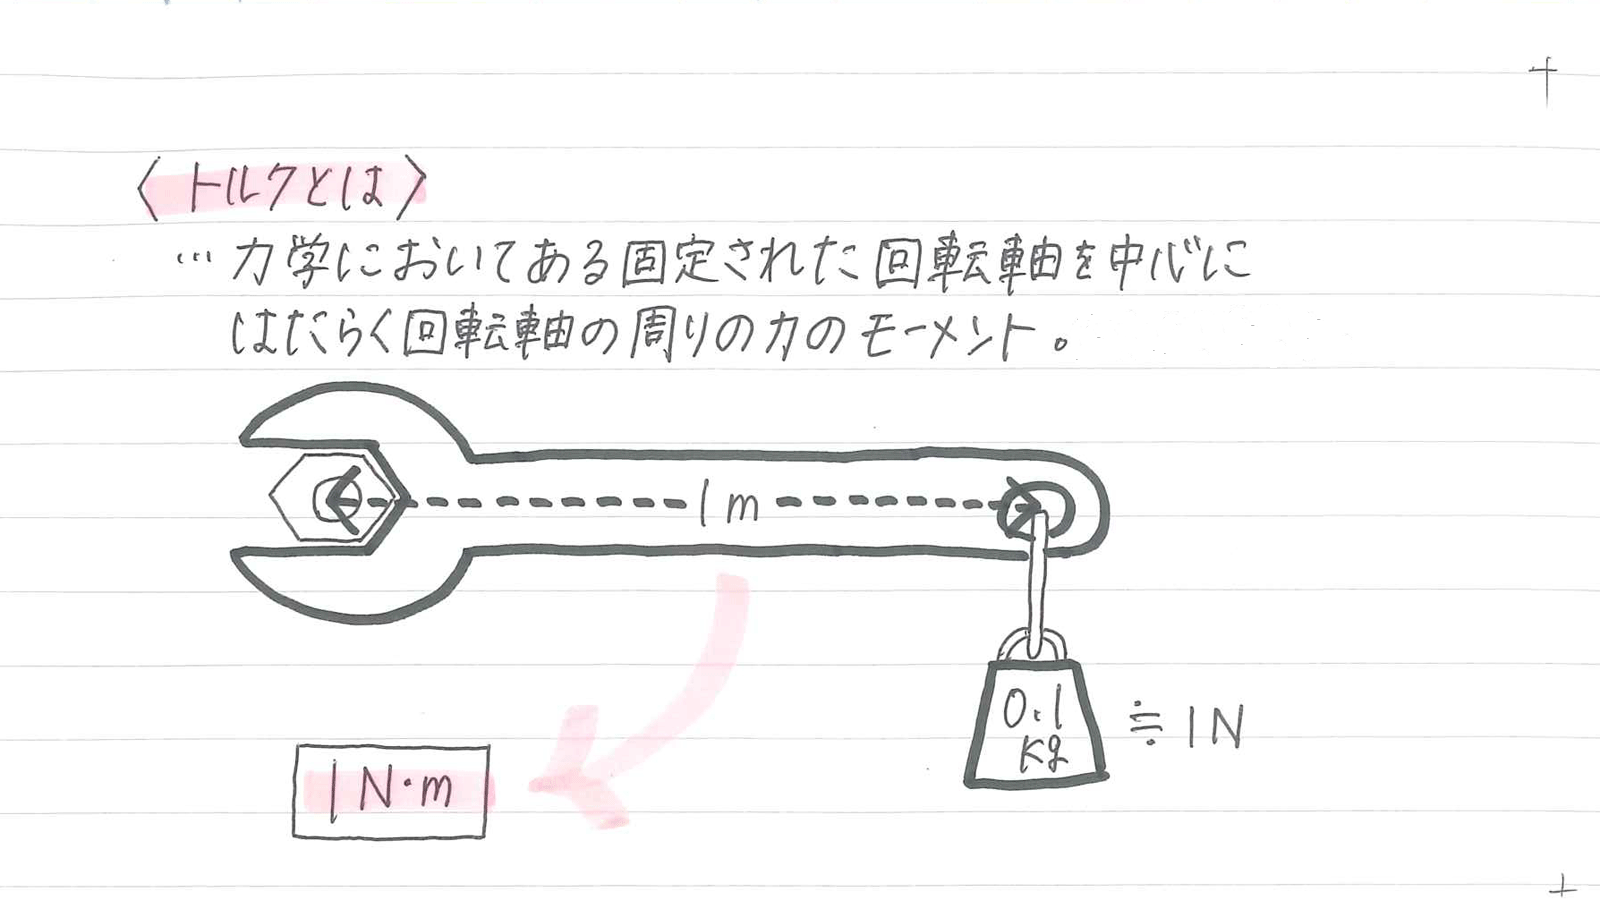 〈トルクとは〉
…力学においてある固定された回転軸を中心に
はたらく回転軸の周りの力のモーメント。
1m
0.1
kg
≒1N
1N・m